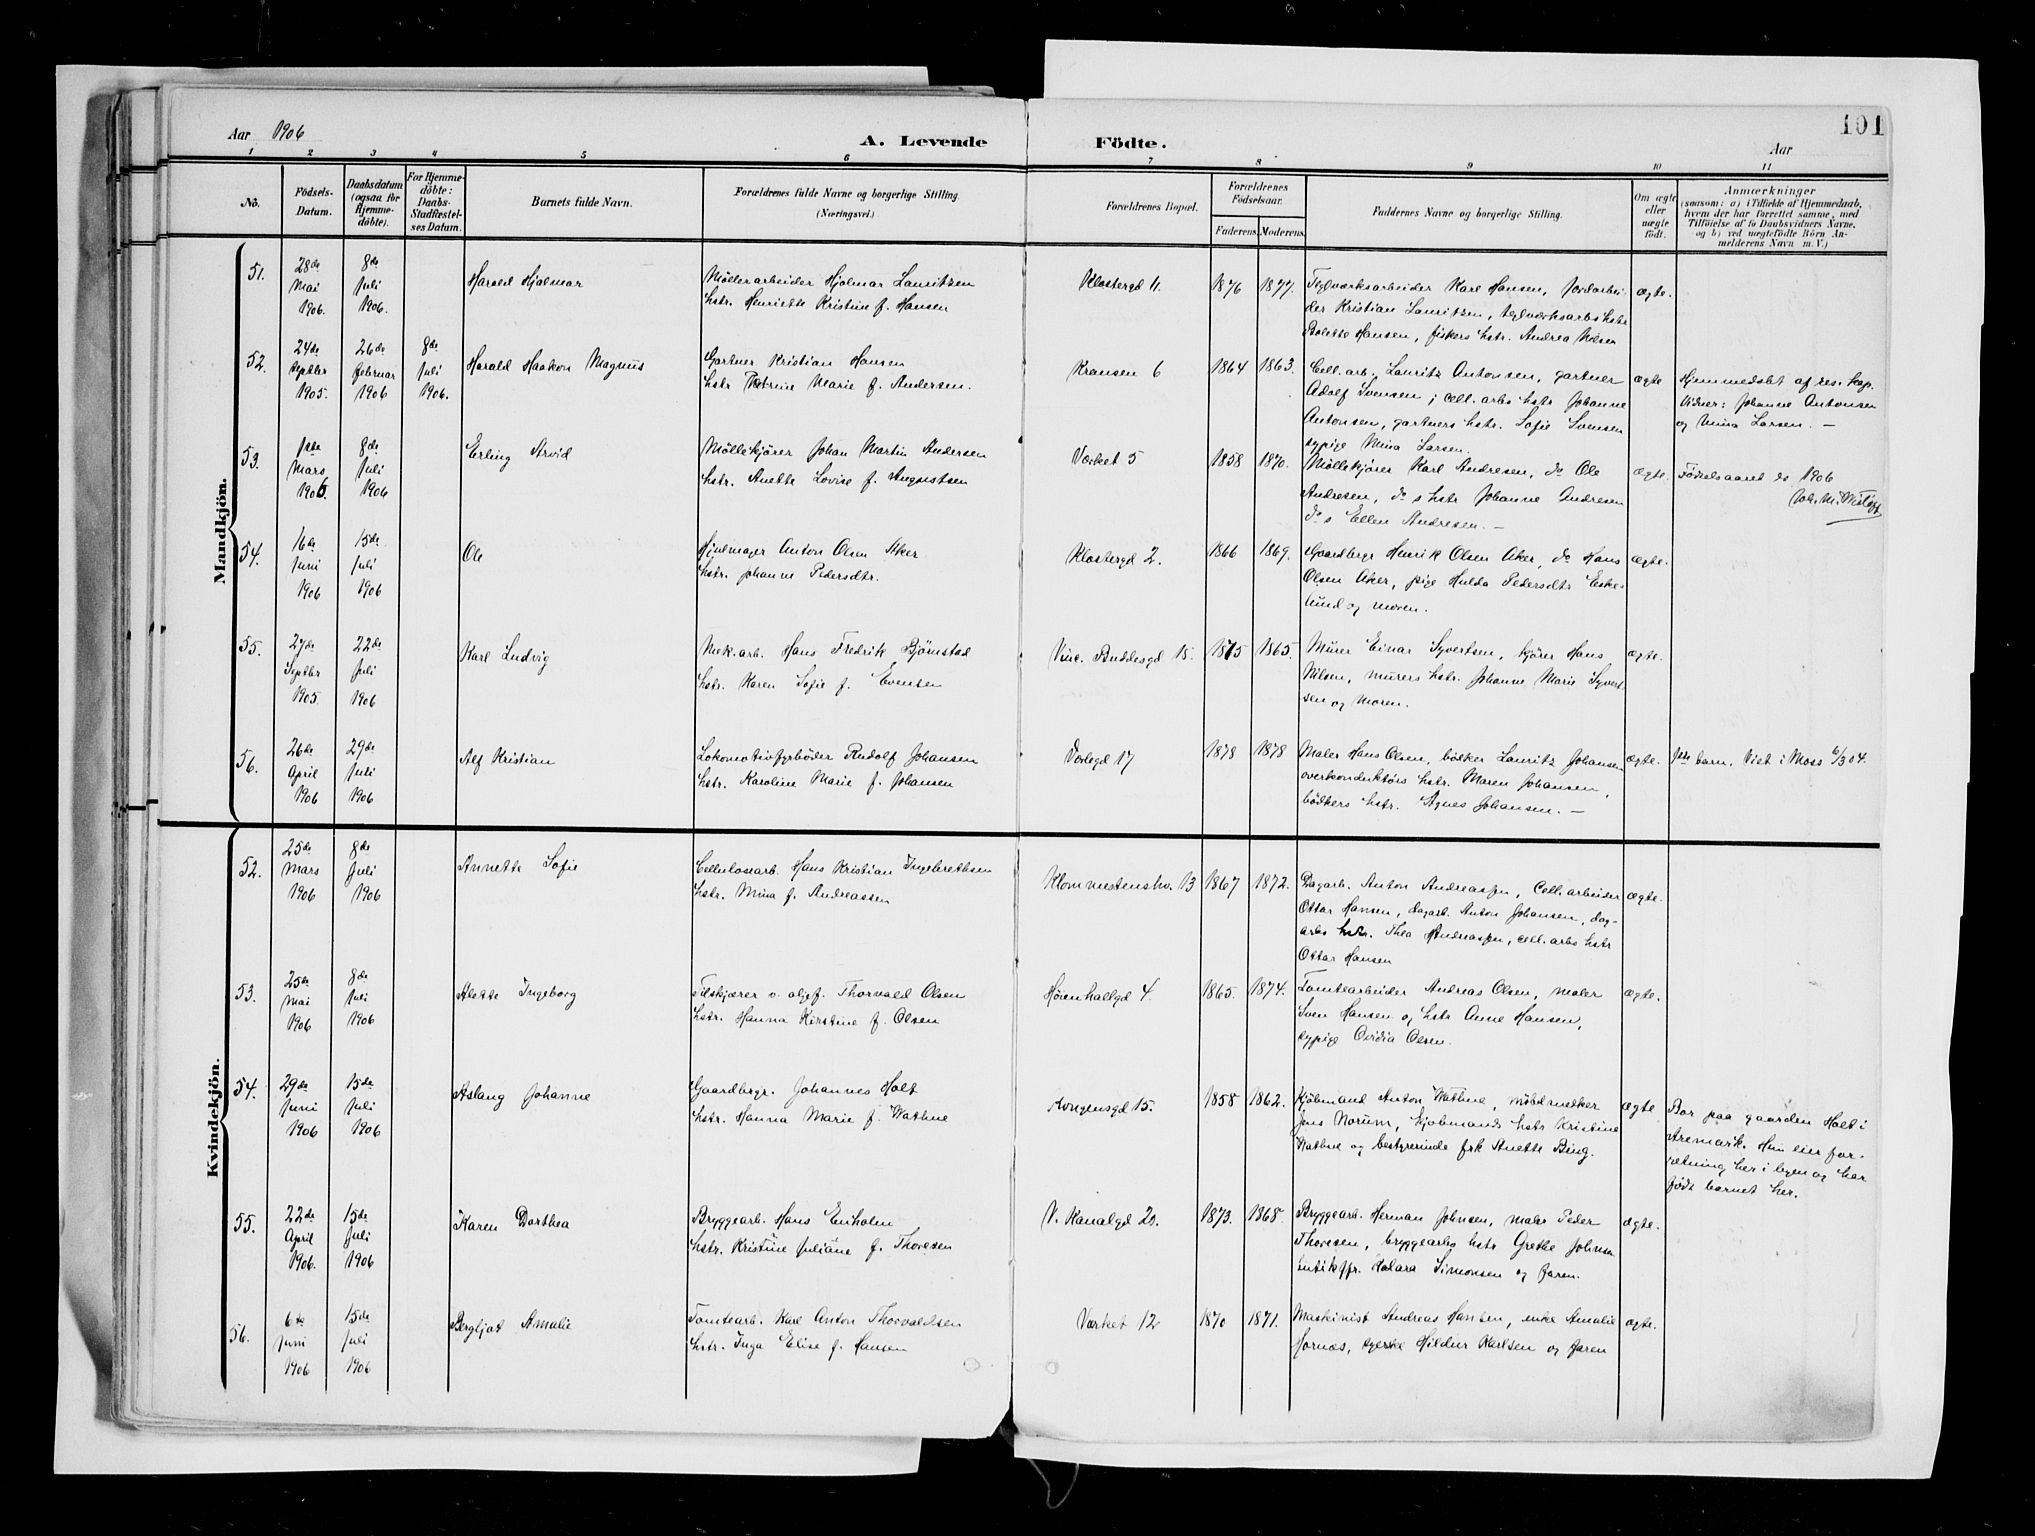 Aar 1906
A. Levende Födte.
Aar
101
1 2 3 4 5 6 7 8 9 10 11
No.
Födsels-Datum.
Daabsdatum (ogsaa for Hjemme-döbte).
For Hjemme-döbte: Daabs-Stadfæstel-ses Datum.
Barnets fulde Navn.
Forældrenes fulde Navne og borgerlige Stilling.
(Næringsvei.)
Forældrenes Bopæl.
Forældrenes Födselsaar.
Faderens. Moderens.
Faddernes Navne og borgerlige Stilling.
Om ægte eller uægte födt.
Anmærkninger
(saasom: a) i Tilfælde af Hjemmedaab,
hvem der har forrettet samme, med
Tilföielse af to Daabsvidners Navne.
og b) ved uægtefödte Börn An-
melderens Navn m. V.)
Mandkjön.
51. 28de Mai 1906. 8de Juli 1906. Harald Hjalmar
Möllerarbeider Hjalmar Lauritzen
hstr. Henriette Kristine f. Hansen
Klostergd 11. 1876 1877.
Teglværksarbeider Karl Hansen, jordarbei-
der Kristian Lauritzen, teglværksarbs hstr
Bolette Hansen, fiskers hstr. Andrea Nilsen
ægte.
52. 24de Septbr 1905. 26de Februar 1906 8de Juli 1906. Harald Haakon Magnus
Gartner Kristian Hansen
hstr Petrine Marie f. Andersen.
Kransen 6 1864 1863.
Cell. arb. Lauritz Antonsen, gartner
Adolf Svensen; cell. arbs hstr Johanne
Antonsen, gartners hstr. Sofie Svensen
sypige Mina Larsen.
ægte
Hjemmedöbt af res. kap.
Vidner: Johanne Antonsen
og Mina Larsen. —
53. 1ste Mars 1906. 8de Juli 1906 Erling Arvid
Möllekjörer Johan Martin Andersen
hstr. Anette Lovise f. Augustsen
Værket 5 1858 1870.
Möllekjörer Karl Andresen, do Ole
Andresen, do s hstr Johanne Andresen
do s Ellen Andresen. —
ægte.
Födselsaaret er 1906
54. 16de Juni 1906 15de Juli 1906 Ole
Hjulmager Anton Olsen Aker
hstr. Johanne Pedersdtr.
Klostergd 2. 1866 1869.
Gaardbrgr Henrik Olsen Aker, do Hans
Olsen Aker, pige Hulda Pedersdtr Eske-
lund og moren.
ægte.
55. 27de Septbr 1905. 22de Juli 1906 Karl Ludvig
Mek. arb. Hans Fredrik Björnstad
hstr. Karen Sofie f. Evensen
Vinc. Buddesgd 15. 1875 1865.
Murer Einar Syvertsen, kjörer Hans
Nilsen, murers hstr. Johanne Marie Syvert-
sen og moren.
ægte.
56. 26de April 1906 29de Juli 1906 Alf Kristian
Lokomotivfyrböder Rudolf Johansen
hstr. Karoline Marie f. Johansen
Voldgd 17 1878 1878
Maler Hans Olsen, bödker Lauritz Johansen
overkonduktörs hstr. Maren Johansen,
bödkers hstr. Agnes Johansen. —
ægte.
1ste barn. Viet i Moss 6/3 04.
Kvindekjön.
52. 25de Mars 1906 8de Juli 1906 Annette Sofie
Cellulosearb. Hans Kristian Ingebrethsen
hstr. Mina f. Andreassen
13 1867 1872.
Dagarb. Anton Andreassen, Cell. arbeider
Ottar Hansen, dagarb. Anton Johansen, dag-
arbs hstr. Thea Andreassen, cell. arbs hstr
Ottar Hansen
ægte.
53. 25de Mai 1906 8de Juli 1906 Alette Ingeborg
Tilskjærer v. oljef. Thorvald Olsen
hstr. Hanna Kirstine f. Olsen
Höienhallgd 4. 1865. 1874.
Tomtearbeider Andreas Olsen, maler
Sven Hansen og hstr Anne Hansen,
sypige Ovidia Olsen.
ægte.
54. 29de Juni 1906 15de Juli 1906 Aslaug Johanne
Gaardbrgr. Johannes Holt
hstr. Hanna Marie f. Wathne
Kongensgd 15. 1858 1862.
Kjöbmand Anton Wathne, möbelmedker
Jens Norum, kjöbmands hstr Kristine
Wathne og bestyrerinde frk Anette Bing.
ægte
Bor paa gaarden Holt i
Aremark. Hun eier for-
retning her i byen og har
födt barnet her.
55. 22de April 1906. 15de Juli 1906 Karen Dorthea
Bryggearb. Hans Enholm
hstr. Kristine Juliane f. Thoresen
V. Kanalgd 23. 1873. 1868.
Bryggearb. Herman Johnsen, maler Peder
Thoresen, bryggearbs hstr Grethe Johnsen
butikfr. Klara Simonsen og faren.
ægte.
56. 6te Juni 1906 15de Juli 1906 Bergljot Amalie
Tomtearb. Karl Anton Thorvaldsen
hstr. Inga Elise f. Hansen
Værket 12 1870 1871.
Maskinist Andreas Hansen, enke Amalie
Hornæs, syerske Hildur Karlsen og faren
ægte.